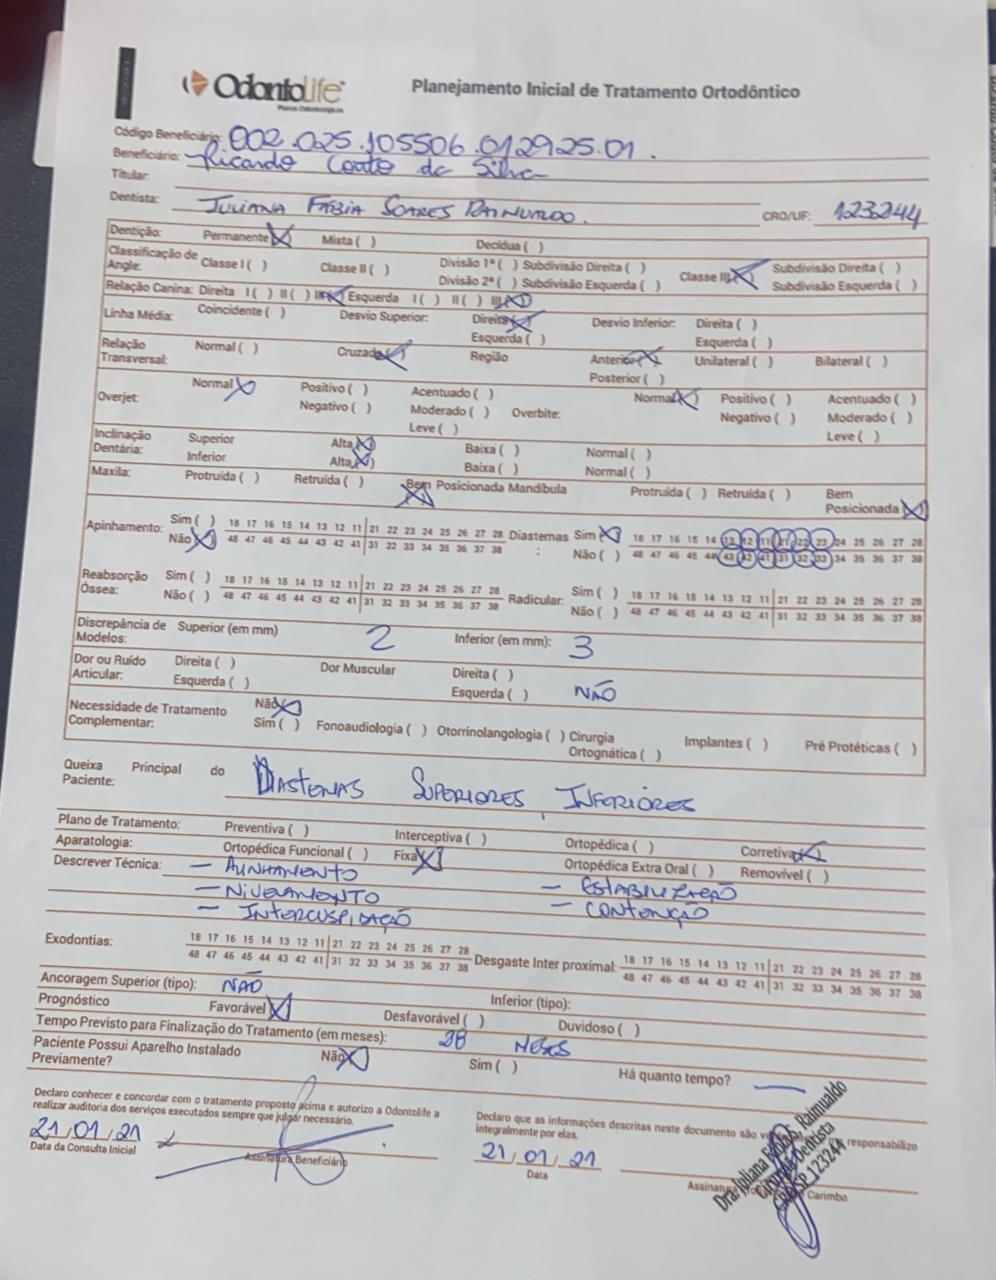 OdontoLife
Planos Odontológicos
Planejamento Inicial de Tratamento Ortodôntico
Código Beneficiário: 002.025.105506.012925.01.
Beneficiário: Ricardo Couto da Silva
Titular:
Dentista: JULIANA FÁBIA SOARES RAIMUNDO. CRO/UF: 123244
Dentição: Permanente (X) Mista ( ) Decídua ( )
Classificação de Angle: Classe I ( ) Classe II ( ) Divisão 1ª ( ) Subdivisão Direita ( ) Classe III (X) Subdivisão Direita ( )
Divisão 2ª ( ) Subdivisão Esquerda ( ) Subdivisão Esquerda ( )
Relação Canina: Direita I ( ) II ( ) III (X) Esquerda I ( ) II ( ) III (X)
Linha Média: Coincidente ( ) Desvio Superior: Direita (X) Desvio Inferior: Direita ( )
Esquerda ( ) Esquerda ( )
Relação Transversal: Normal ( ) Cruzada (X) Região Anterior (X) Unilateral ( ) Bilateral ( )
Posterior ( )
Overjet: Normal (X) Positivo ( ) Acentuado ( ) Overbite: Normal (X) Positivo ( ) Acentuado ( )
Negativo ( ) Moderado ( ) Negativo ( ) Moderado ( )
Leve ( ) Leve ( )
Inclinação Dentária: Superior Alta (X) Baixa ( ) Normal ( )
Inferior Alta (X) Baixa ( ) Normal ( )
Maxila: Protruída ( ) Retruída ( ) Bem Posicionada (X) Mandíbula Protruída ( ) Retruída ( ) Bem Posicionada (X)
Apinhamento: Sim ( ) 18 17 16 15 14 13 12 11 21 22 23 24 25 26 27 28 Diastemas: Sim (X) 18 17 16 15 14 13 12 11 21 22 23 24 25 26 27 28
Não (X) 48 47 46 45 44 43 42 41 31 32 33 34 35 36 37 38 Não ( ) 48 47 46 45 44 43 42 41 31 32 33 34 35 36 37 38
Reabsorção Óssea: Sim ( ) 18 17 16 15 14 13 12 11 21 22 23 24 25 26 27 28 Radicular: Sim ( ) 18 17 16 15 14 13 12 11 21 22 23 24 25 26 27 28
Não ( ) 48 47 46 45 44 43 42 41 31 32 33 34 35 36 37 38 Não ( ) 48 47 46 45 44 43 42 41 31 32 33 34 35 36 37 38
Discrepância de Modelos: Superior (em mm) 2 Inferior (em mm): 3
Dor ou Ruído Articular: Direita ( ) Dor Muscular Direita ( )
Esquerda ( ) Esquerda ( ) NÃO
Necessidade de Tratamento Complementar: Não (X)
Sim ( ) Fonoaudiologia ( ) Otorrinolangologia ( ) Cirurgia Ortognática ( ) Implantes ( ) Pré Protéticas ( )
Queixa Principal do Paciente: DIASTEMAS SUPERIORES, INFERIORES
Plano de Tratamento: Preventiva ( ) Interceptiva ( ) Ortopédica ( ) Corretiva (X)
Aparatologia: Ortopédica Funcional ( ) Fixa (X) Ortopédica Extra Oral ( ) Removível ( )
Descrever Técnica: - ALINHAMENTO - ESTABILIZAÇÃO
- NIVELAMENTO - CONTENÇÃO
- INTERCUSPIDAÇÃO
Exodontias: 18 17 16 15 14 13 12 11 21 22 23 24 25 26 27 28 Desgaste Inter proximal: 18 17 16 15 14 13 12 11 21 22 23 24 25 26 27 28
48 47 46 45 44 43 42 41 31 32 33 34 35 36 37 38 48 47 46 45 44 43 42 41 31 32 33 34 35 36 37 38
Ancoragem Superior (tipo): NÃO Inferior (tipo):
Prognóstico Favorável (X) Desfavorável ( ) Duvidoso ( )
Tempo Previsto para Finalização do Tratamento (em meses): MESES
Paciente Possui Aparelho Instalado Previamente? Não (X) Sim ( ) Há quanto tempo? —
Declaro conhecer e concordar com o tratamento proposto acima e autorizo a Odontolife a
realizar auditoria dos serviços executados sempre que julgar necessário.
21/01/21
Data da Consulta Inicial Assinatura Beneficiário
Declaro que as informações descritas neste documento são responsabilizo
integralmente por elas.
21/01/21
Data
Assinatura Carimbo
Dra. Juliana Fábia S. Raimundo
Cirurgiã Dentista
CRO SP 123244